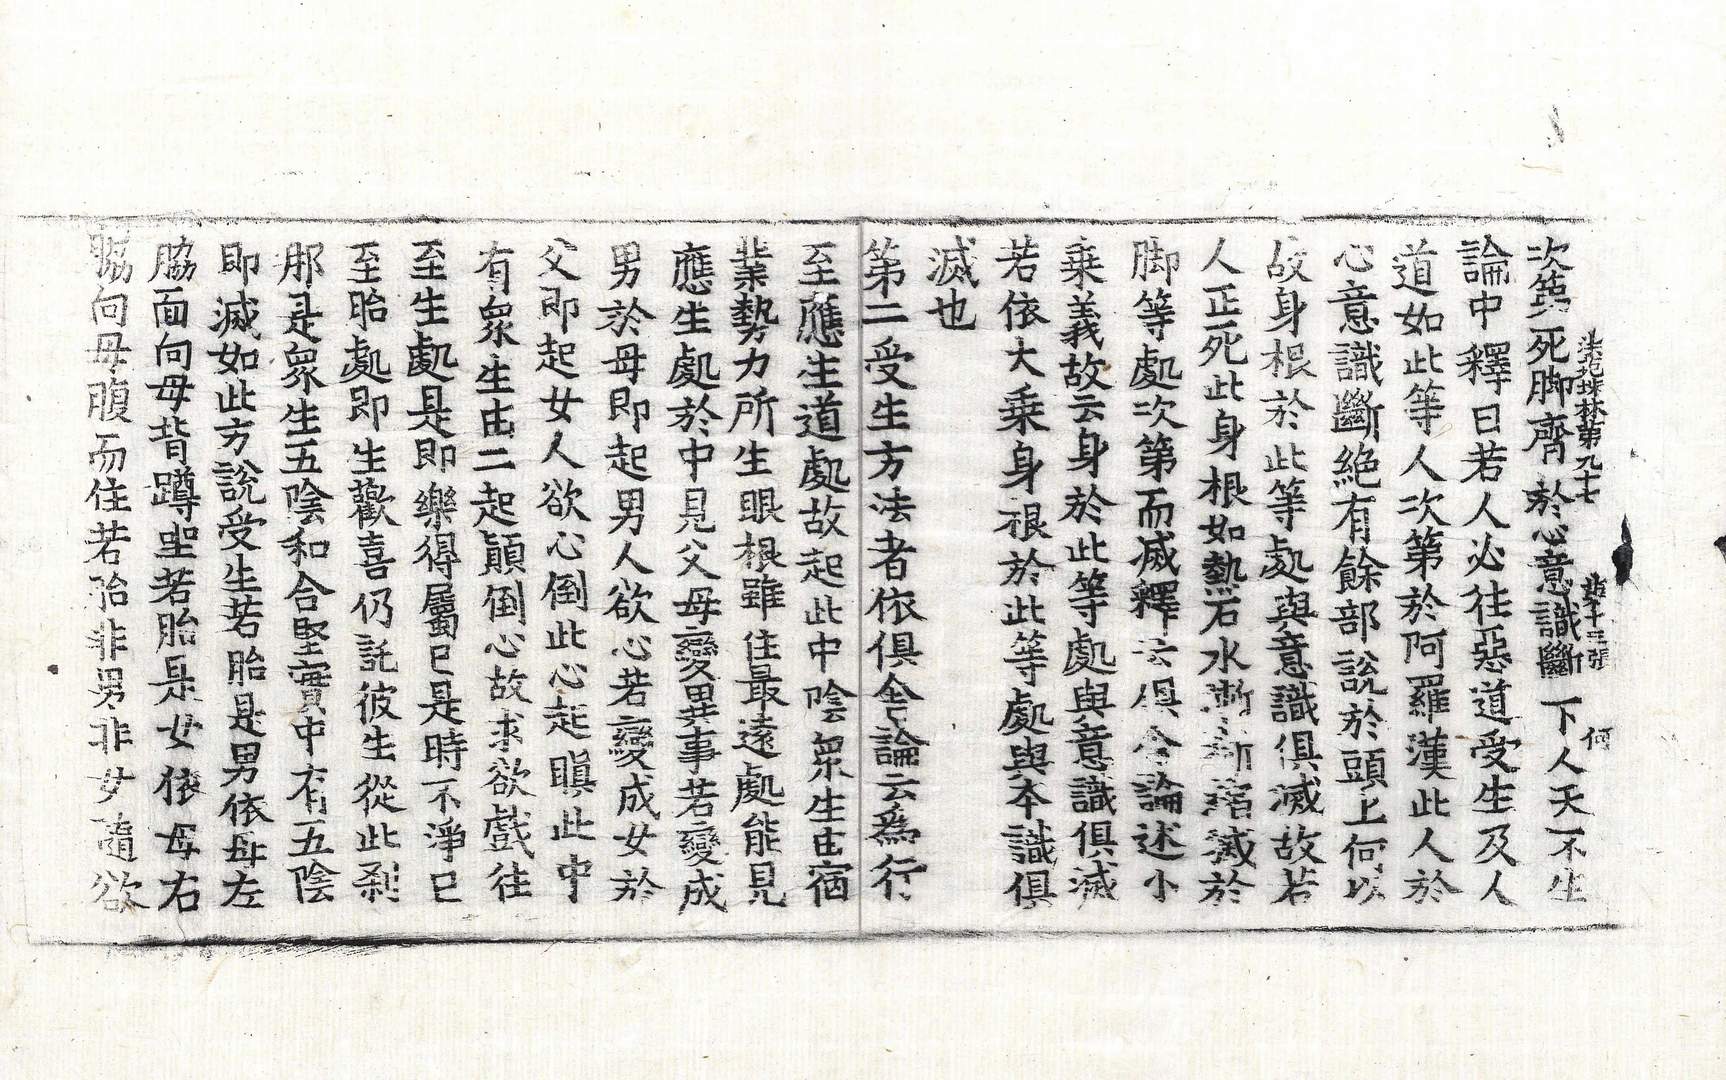 法苑珠林第九十七 第十三張 何
次第死脚齊於心意識斷下人天不生
論中釋曰若人必往惡道受生及人
道如此等人次第於阿羅漢此人於
心意識斷絶有餘部說於頭上何以
故身根於此等處與意識俱滅故若
人正死此身根如熱石水漸漸縮滅於
脚等處次第而滅釋云俱舍論述小
乗義故云身於此等處與意識俱滅
若依大乗身根於此等處與本識俱
滅也
第二受生方法者依俱舍論云爲行
至應生道處故起此中陰衆生由宿
業勢力所生眼根雖住最遠處能見
應生處於中見父母變異事若變成
男於母即起男人欲心若變成女於
父即起女人欲心倒此心起瞋此中
有衆生由二起顛倒心故求欲戲往
至生處是即樂得屬已是時不淨已
至胎處即生歡喜仍託彼生從此刹
那是衆生五陰和合堅實中有五陰
即滅如此方說受生若胎是男依母左
脇面向母背蹲坐若胎是女依母右
脇向母腹而住若胎非男非女隨欲